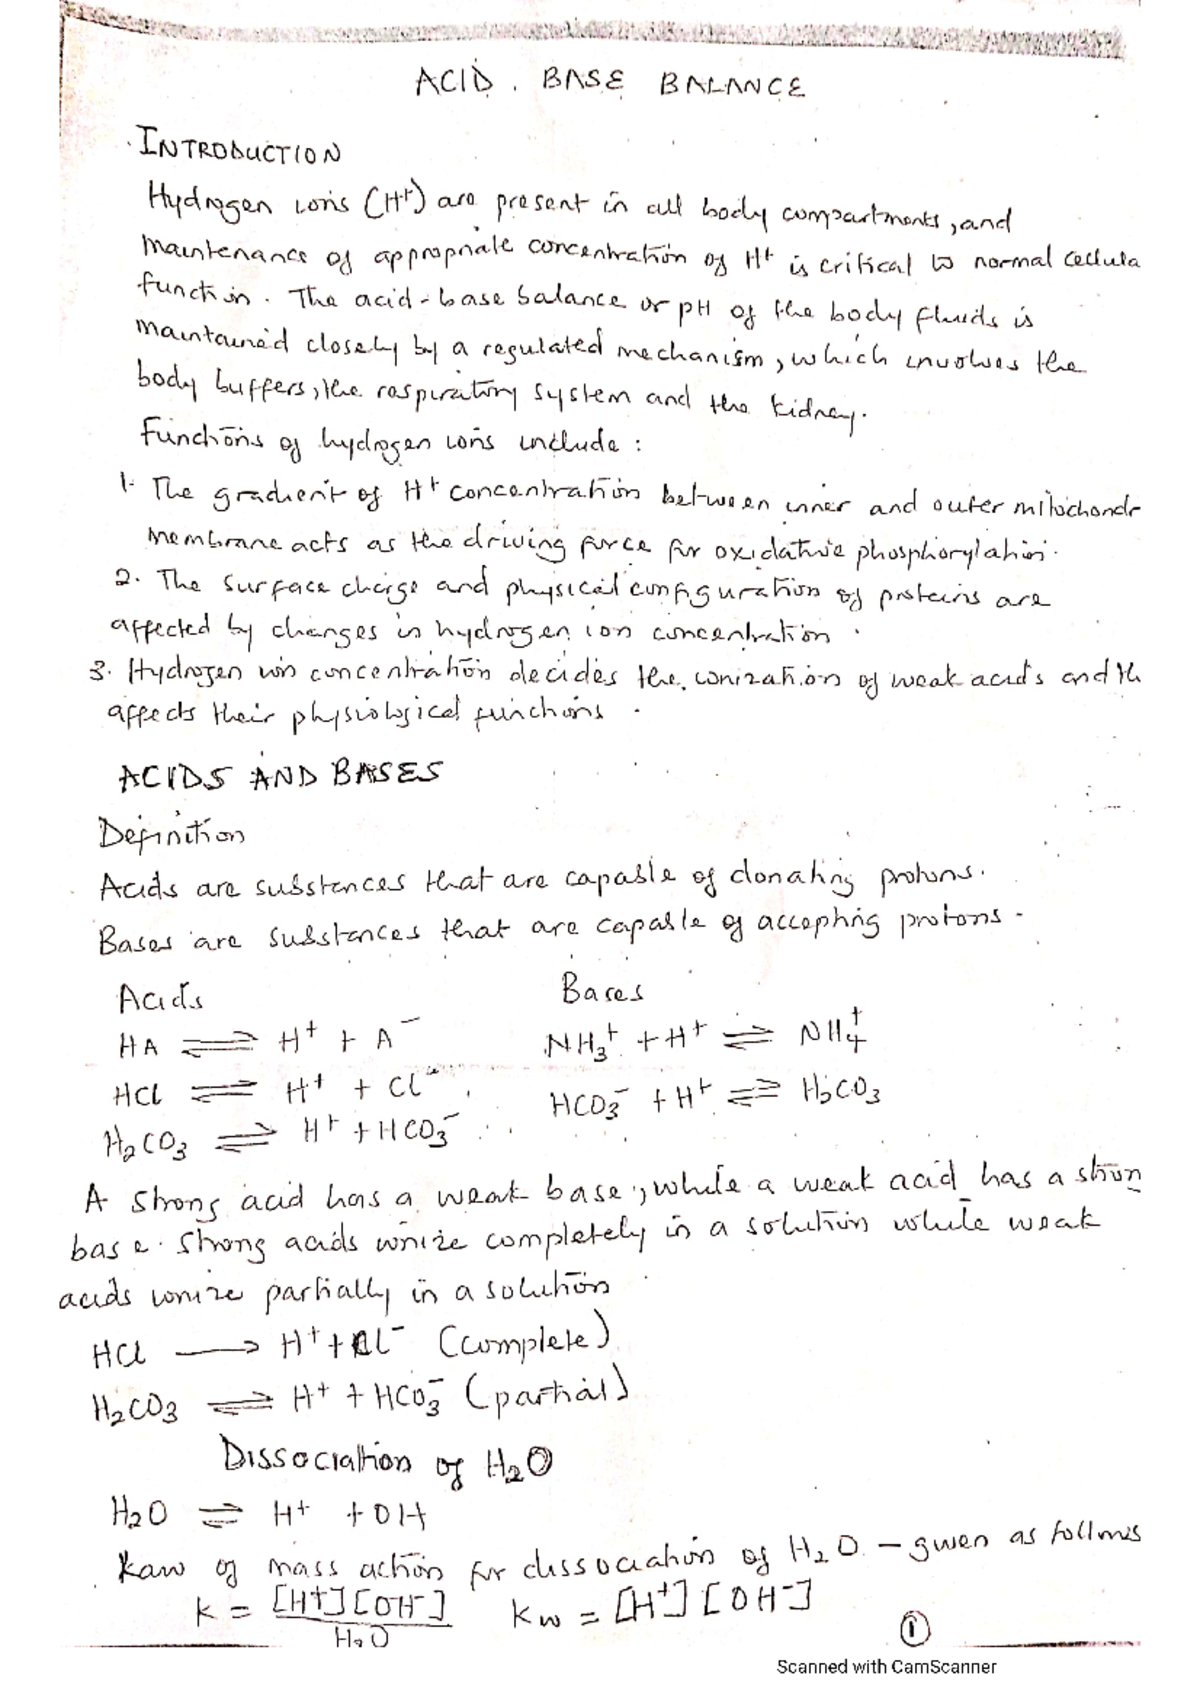 ACID. BASE BALANCE
INTRODUCTION
Hydrogen ions (H⁺) are present in all body compartments, and
maintenance of appropriate concentration of H⁺ is critical to normal cellula
function. The acid-base balance or pH of the body fluids is
maintained closely by a regulated mechanism, which involves the
body buffers, the respiratory system and the kidney.
Functions of hydrogen ions include :
1. The gradient of H⁺ concentration between inner and outer mitochondr
membrane acts as the driving force for oxidative phosphorylation.
2. The surface charge and physical configuration of proteins are
affected by changes in hydrogen ion concentration.
3. Hydrogen ion concentration decides the ionization of weak acids and th
affects their physiological functions.
ACIDS AND BASES
Definition
Acids are substances that are capable of donating protons.
Bases are substances that are capable of accepting protons.
Acids Bases
HA ⇌ H⁺ + A⁻ NH₃⁺ + H⁺ ⇌ NH₄⁺
HCl ⇌ H⁺ + Cl⁻ HCO₃⁻ + H⁺ ⇌ H₂CO₃
H₂CO₃ ⇌ H⁺ + HCO₃⁻
A strong acid has a weak base, while a weak acid has a stron
base. Strong acids ionize completely in a solution while weak
acids ionize partially in a solution
HCl → H⁺ + Cl⁻ (complete)
H₂CO₃ ⇌ H⁺ + HCO₃⁻ (partial)
Dissociation of H₂O
H₂O ⇌ H⁺ + OH
Law of mass action for dissociation of H₂O – given as follows
K = [H⁺][OH⁻] Kw = [H⁺][OH⁻]
H₂O
1
Scanned with CamScanner